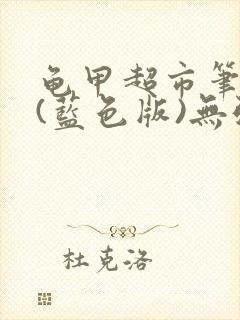 龟甲超市筆
(藍色版)無
杜克洛